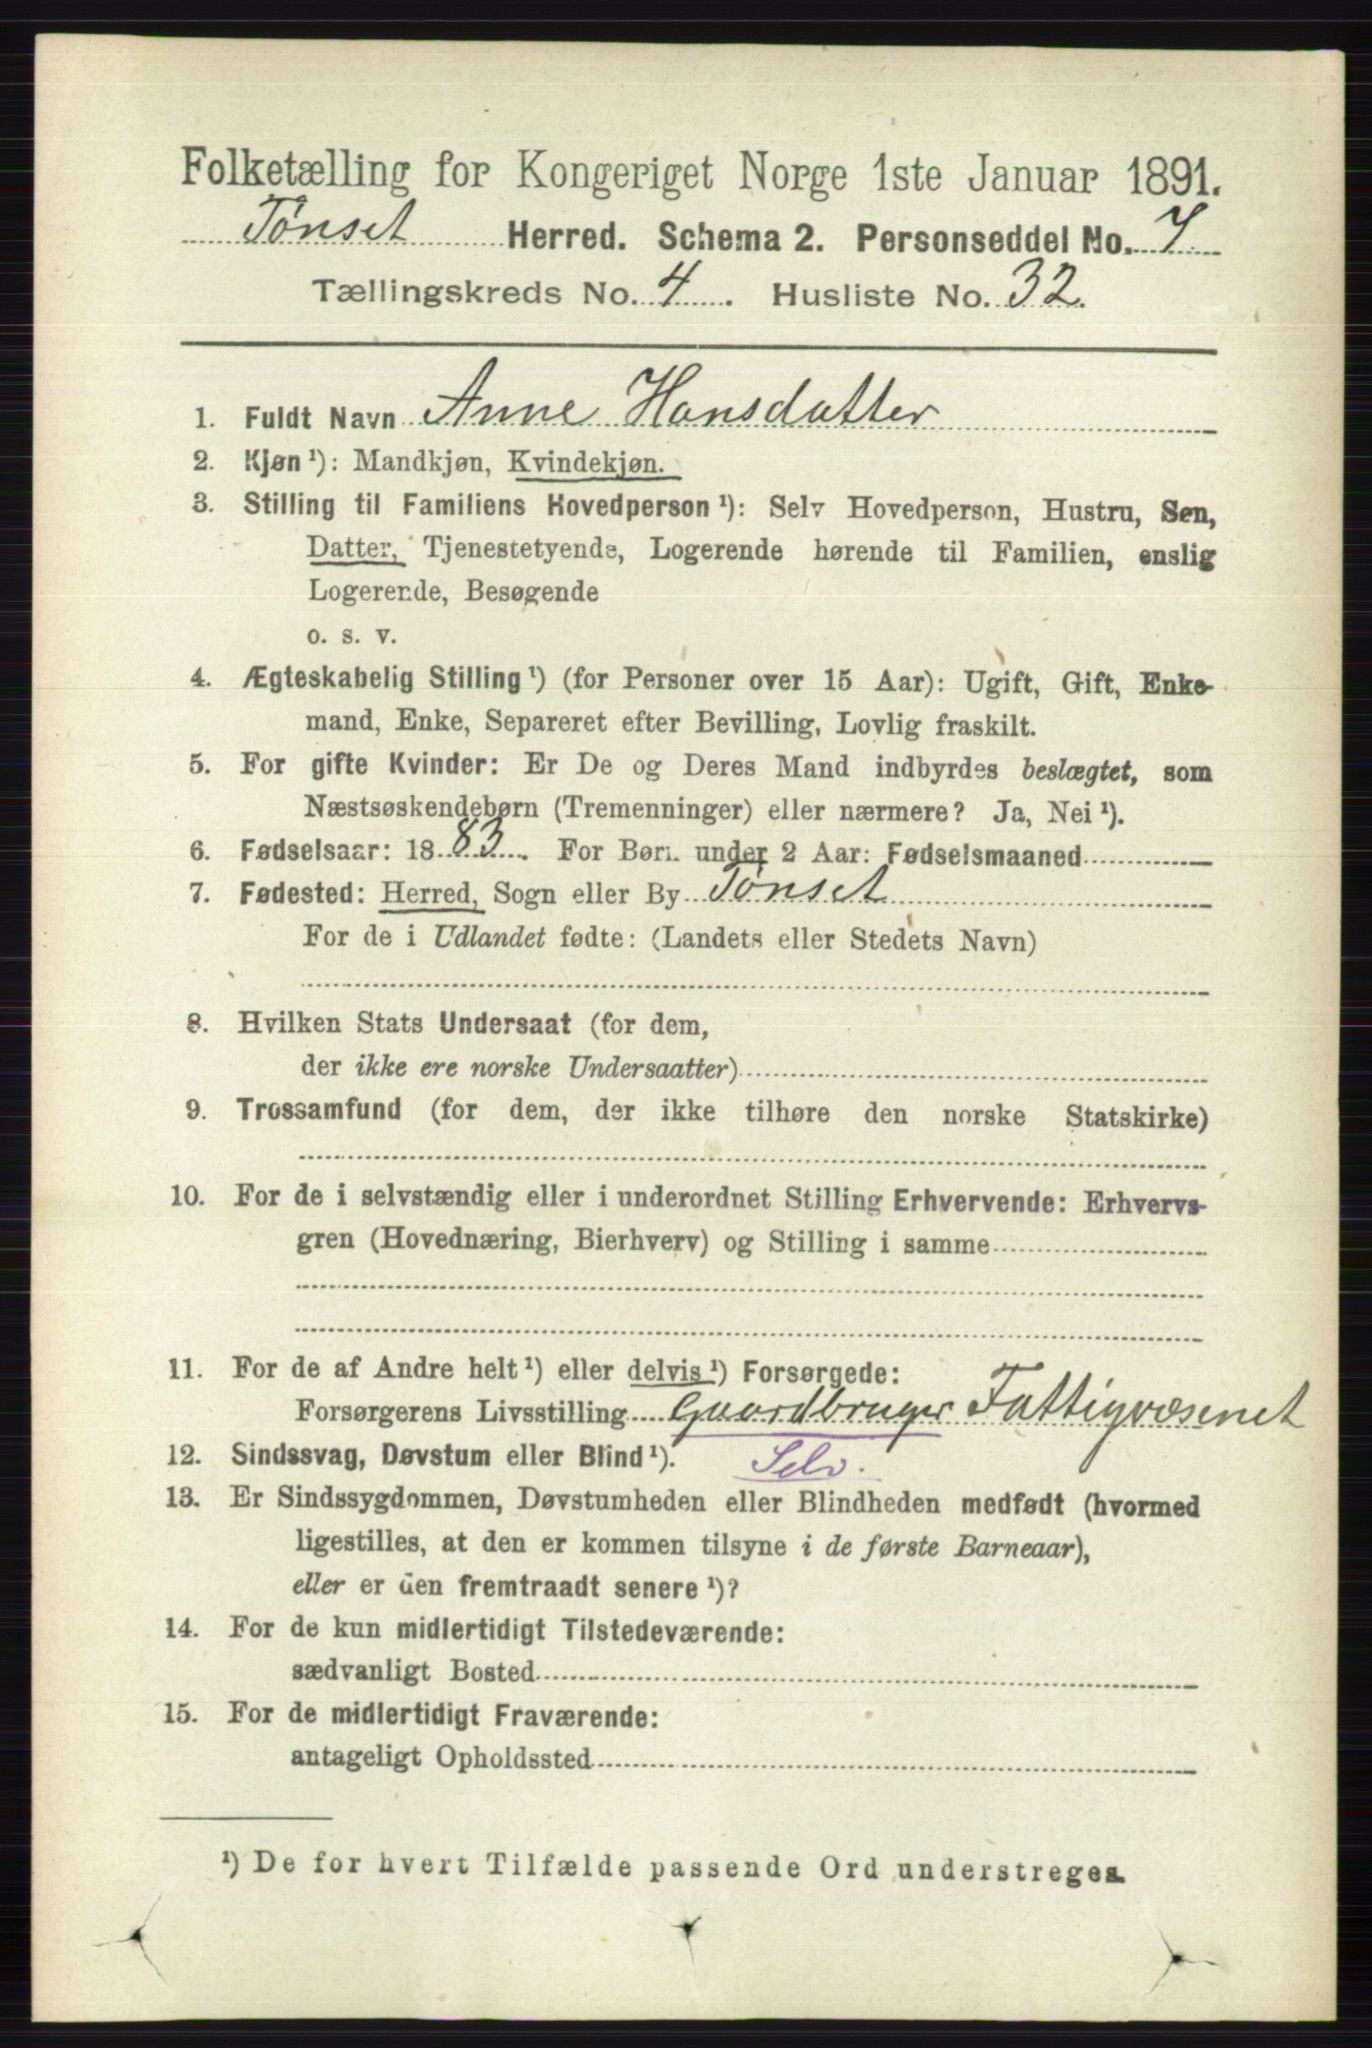 Folketælling for Kongeriget Norge 1ste Januar 1891.
Tønset Herred. Schema 2. Personseddel No. 7
Tællingskreds No. 4. Husliste No. 32.
1. Fuldt Navn Anne Hansdatter
2. Kjøn ¹): Mandkjøn, Kvindekjøn.
3. Stilling til Familiens Hovedperson ¹): Selv Hovedperson, Hustru, Søn,
Datter, Tjenestetyende, Logerende hørende til Familien, enslig
Logerende, Besøgende
o. s. v.
4. Ægteskabelig Stilling ¹) (for Personer over 15 Aar): Ugift, Gift, Enke-
mand, Enke, Separeret efter Bevilling, Lovlig fraskilt.
5. For gifte Kvinder: Er De og Deres Mand indbyrdes beslægtet, som
Næstsøskendebørn (Tremenninger) eller nærmere? Ja, Nei ¹).
6. Fødselsaar: 1883. For Børn under 2 Aar: Fødselsmaaned
7. Fødested: Herred, Sogn eller By Tønset
For de i Udlandet fødte: (Landets eller Stedets Navn)
8. Hvilken Stats Undersaat (for dem,
der ikke ere norske Undersaatter)
9. Trossamfund (for dem, der ikke tilhøre den norske Statskirke)
10. For de i selvstændig eller i underordnet Stilling Erhvervende: Erhvervs-
gren (Hovednæring, Bierhverv) og Stilling i samme
11. For de af Andre helt ¹) eller delvis ¹) Forsørgede:
Forsørgerens Livsstilling Gaardbruger Fattigvæsenet
12. Sindssvag, Døvstum eller Blind ¹). Selv.
13. Er Sindssygdommen, Døvstumheden eller Blindheden medfødt (hvormed
ligestilles, at den er kommen tilsyne i de første Barneaar),
eller er den fremtraadt senere ¹)?
14. For de kun midlertidigt Tilstedeværende:
sædvanligt Bosted
15. For de midlertidigt Fraværende:
antageligt Opholdssted
¹) De for hvert Tilfælde passende Ord understreges.